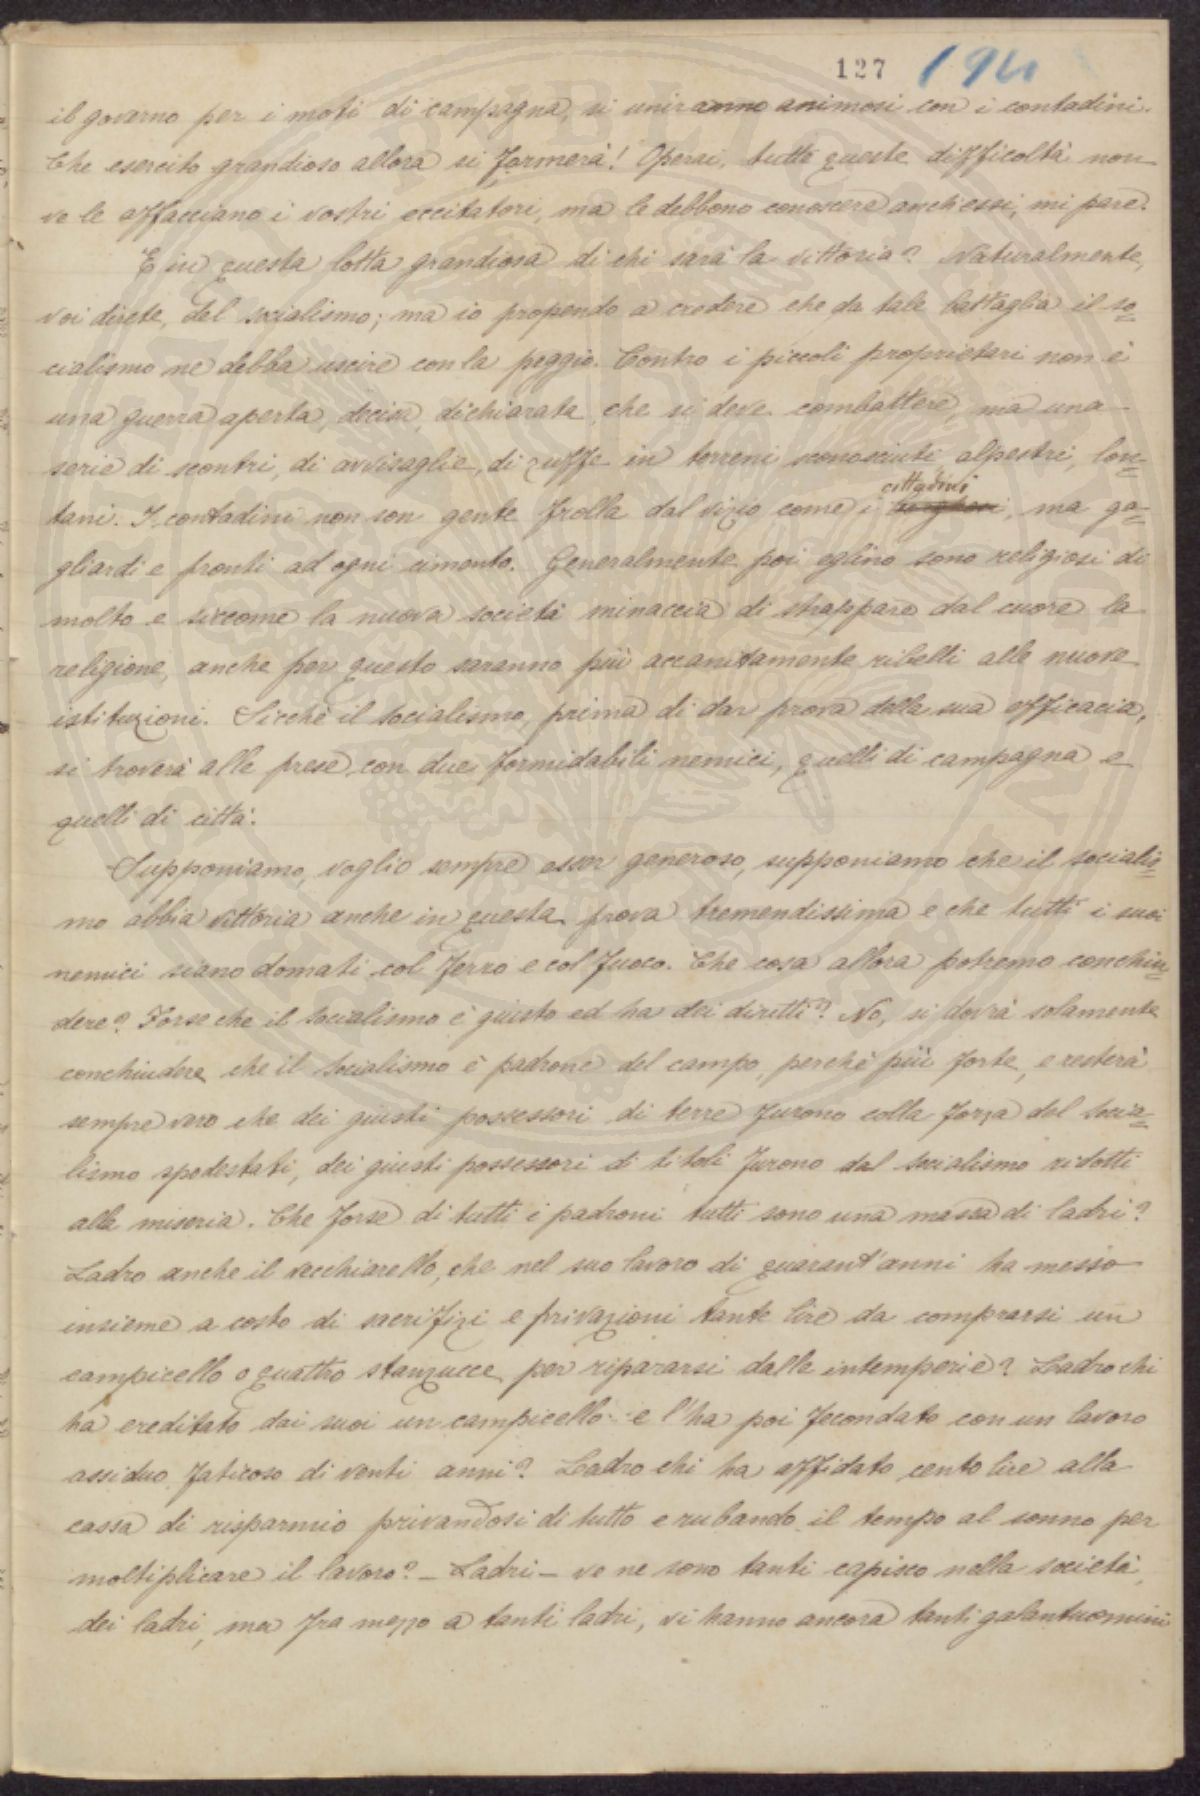 127 194
il governo per i moti di campagna, si uniranno animosi con i contadini.
Che esercito grandioso allora si formerà! Operai, tutte queste difficoltà non
ve le affacciano i vostri eccitatori, ma le debbono conoscere anch'essi, mi pare.
E in questa lotta grandiosa di chi sarà la vittoria? Naturalmente,
voi direte, del socialismo; ma io propendo a credere che da tale battaglia il so=
cialismo ne debba uscire con la peggio. Contro i piccoli proprietari non è
una guerra aperta, decisa, dichiarata, che si deve combattere, ma una
serie di scontri, di avvisaglie, di zuffe in terreni sconosciuti, alpestri, lon=
cittadini
tani. I contadini non son gente frolla dal vizio come i borghesi, ma ga=
gliardi e pronti ad ogni cimento. Generalmente poi eglino sono religiosi di
molto e siccome la nuova società minaccia di strappare dal cuore la
religione, anche per questo saranno più accanitamente ribelli alle nuove
istituzioni. Sicchè il socialismo, prima di dar prova della sua efficacia,
si troverà alle prese con due formidabili nemici, quelli di campagna e
quelli di città.
Supponiamo, voglio sempre esser generoso, supponiamo che il socialis=
mo abbia vittoria anche in questa prova tremendissima e che tutti i suoi
nemici siano domati col ferro e col fuoco. Che cosa allora potremo conchiu=
dere? Forse che il socialismo è giusto ed ha dei diritti? No, si dovrà solamente
conchiudere che il socialismo è padrone del campo, perchè più forte, e resterà
sempre vero che dei giusti possessori di terre furono colla forza del socia=
lismo spodestati, dei giusti possessori di titoli furono dal socialismo ridotti
alla miseria. Che forse di tutti i padroni tutti sono una massa di ladri?
Ladro anche il vecchiarello, che nel suo lavoro di quarant'anni ha messo
insieme a costo di sacrifizi e privazioni tante lire da comprarsi un
campicello o quattro stanzucce per ripararsi dalle intemperie? Ladro chi
ha ereditato dai suoi un campicello e l'ha poi fecondato con un lavoro
assiduo faticoso di venti anni? Ladro chi ha affidato cento lire alla
cassa di risparmio privandosi di tutto e rubando il tempo al sonno per
moltiplicare il lavoro? – Ladri – ve ne sono tanti capisco nella società,
dei ladri, ma fra mezzo a tanti ladri, vi hanno ancora tanti galantuomini